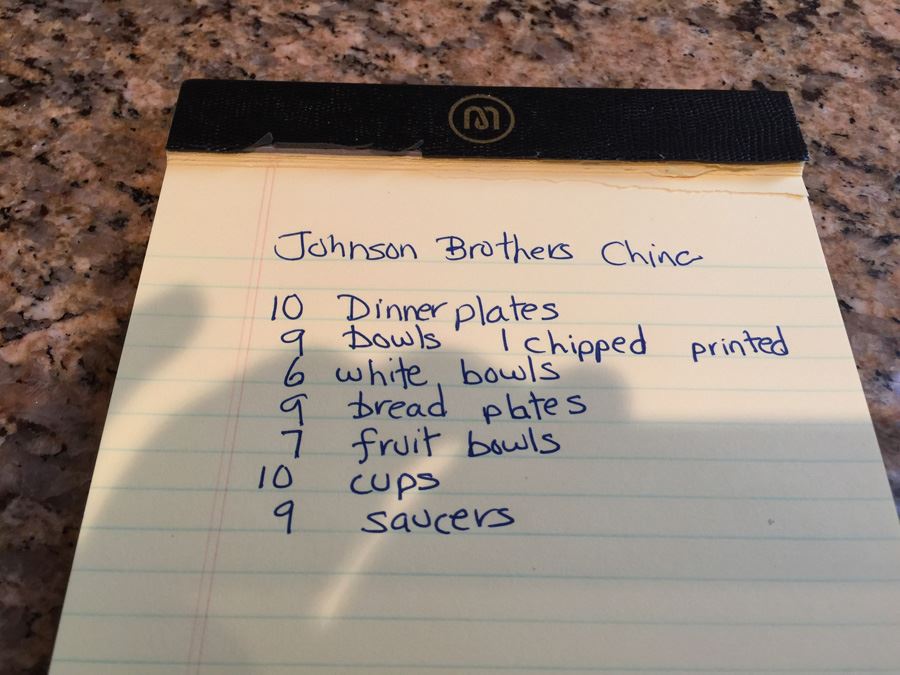 Johnson Brothers China
10 Dinner plates
9 bowls 1 chipped printed
6 white bowls
9 bread plates
7 fruit bowls
10 cups
9 saucers